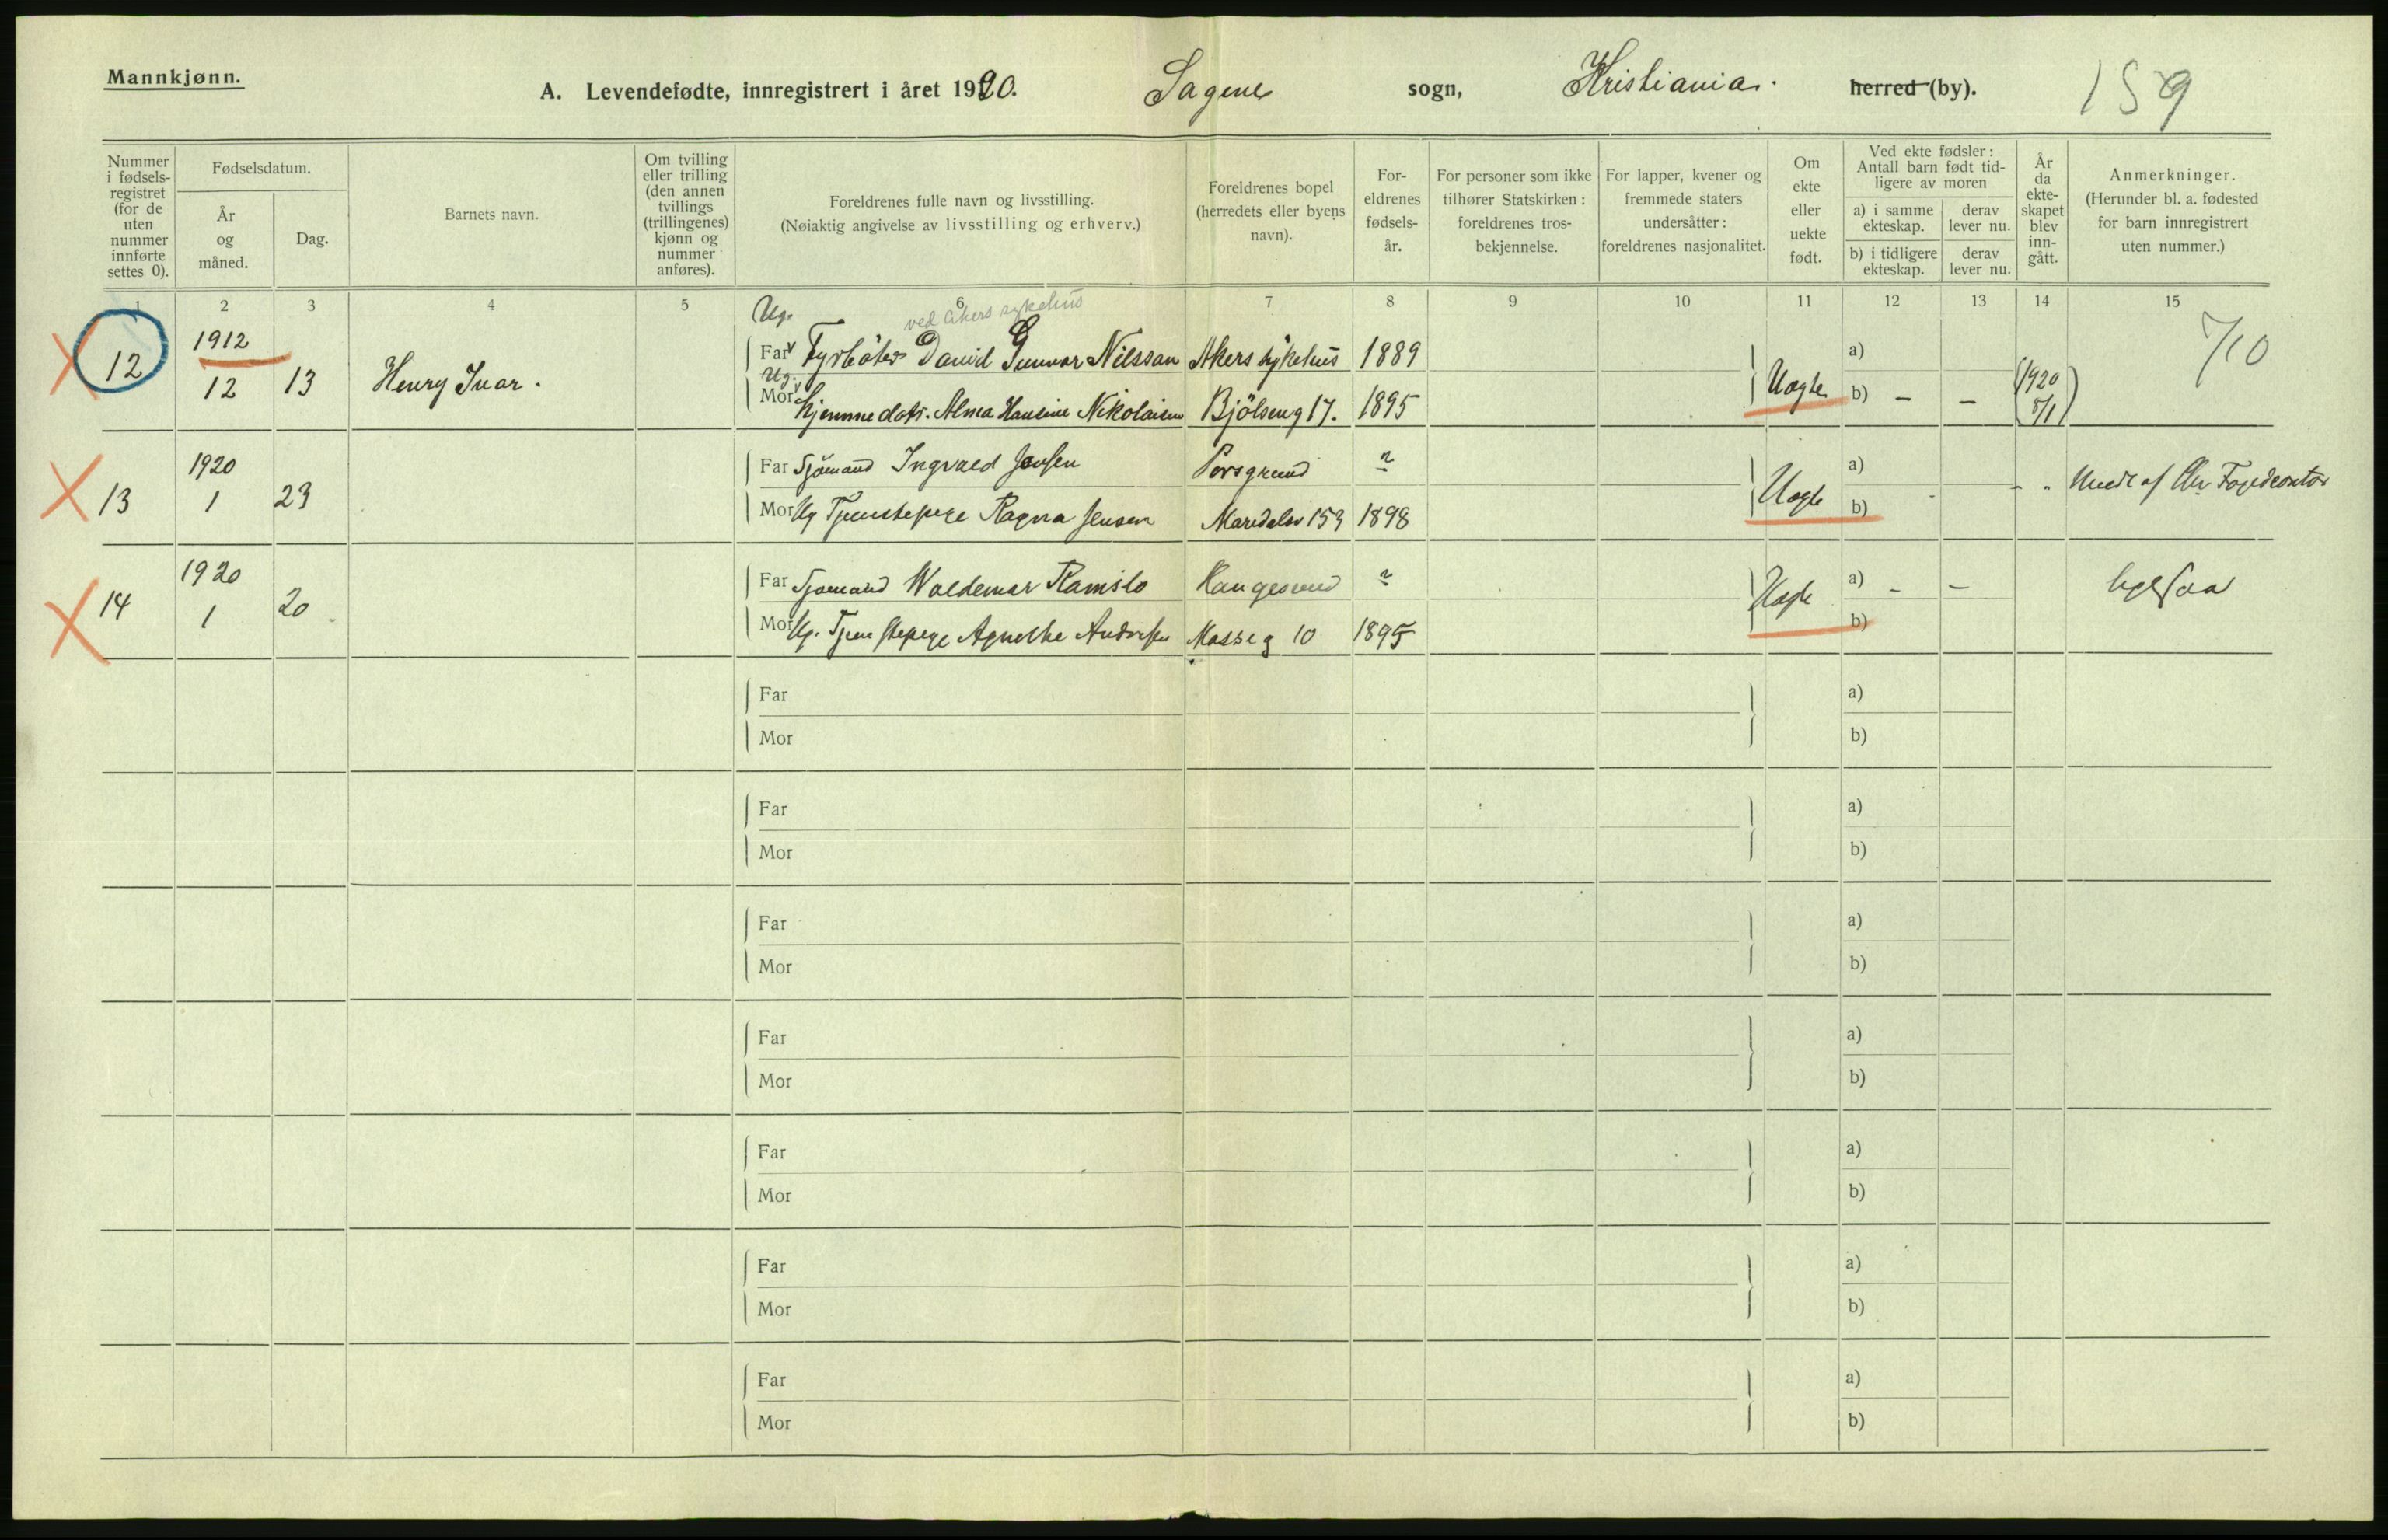 Mannkjønn.
A. Levendefødte, innregistrert i året 1920. Sagene sogn, Kristiania. herred (by). 159
Nummer i fødsels-registret (for de uten nummer innførte settes 0).
Fødselsdatum.
År og måned.
Dag.
Barnets navn.
Om tvilling eller trilling (den annen tvillings (trillingenes) kjønn og nummer anføres).
Foreldrenes fulle navn og livsstilling.
(Nøiaktig angivelse av livsstilling og erhverv.)
Foreldrenes bopel (herredets eller byens navn).
For-eldrenes fødsels-år.
For personer som ikke tilhører Statskirken: foreldrenes tros-bekjennelse.
For lapper, kvener og fremmede staters undersåtter: foreldrenes nasjonalitet.
Om ekte eller uekte født.
Ved ekte fødsler: Antall barn født tid-ligere av moren
a) i samme ekteskap.
derav lever nu.
b) i tidligere ekteskap.
derav lever nu.
År da ekte-skapet blev inn-gått.
Anmerkninger.
(Herunder bl. a. fødested for barn innregistrert uten nummer.)
1 2 3 4 5 6 7 8 9 10 11 12 13 14 15
Ug. ved Akers sykehus
12 1912 Far Fyrbøter David Gunnar Nilssan Akers sykehus 1889 a) 7/10
12 13 Henry Ivar. Ug. Mor Hjemmedatr. Alma Hansine Nikolaisen Bjölseng 17. 1895 Uægte b) - - (1920 8/1)
1920 Far Sjömand Ingvald Jensen Porsgrund a)
13 1 23 Mor Ug Tjenestepige Ragna Jensen Maridalsv 159 1898 Uægte b) Meddt af Chr Fogedcontor
1920 Far Sjömand Waldemar Ramslo Haugesund a) - -
14 1 20 Mor Ug. Tjenestepige Agnethe Andersen Mosseg 10 1895 Uægte b) ligesaa
Far a)
Mor b)
Far a)
Mor b)
Far a)
Mor b)
Far a)
Mor b)
Far a)
Mor b)
Far a)
Mor b)
Far a)
Mor b)